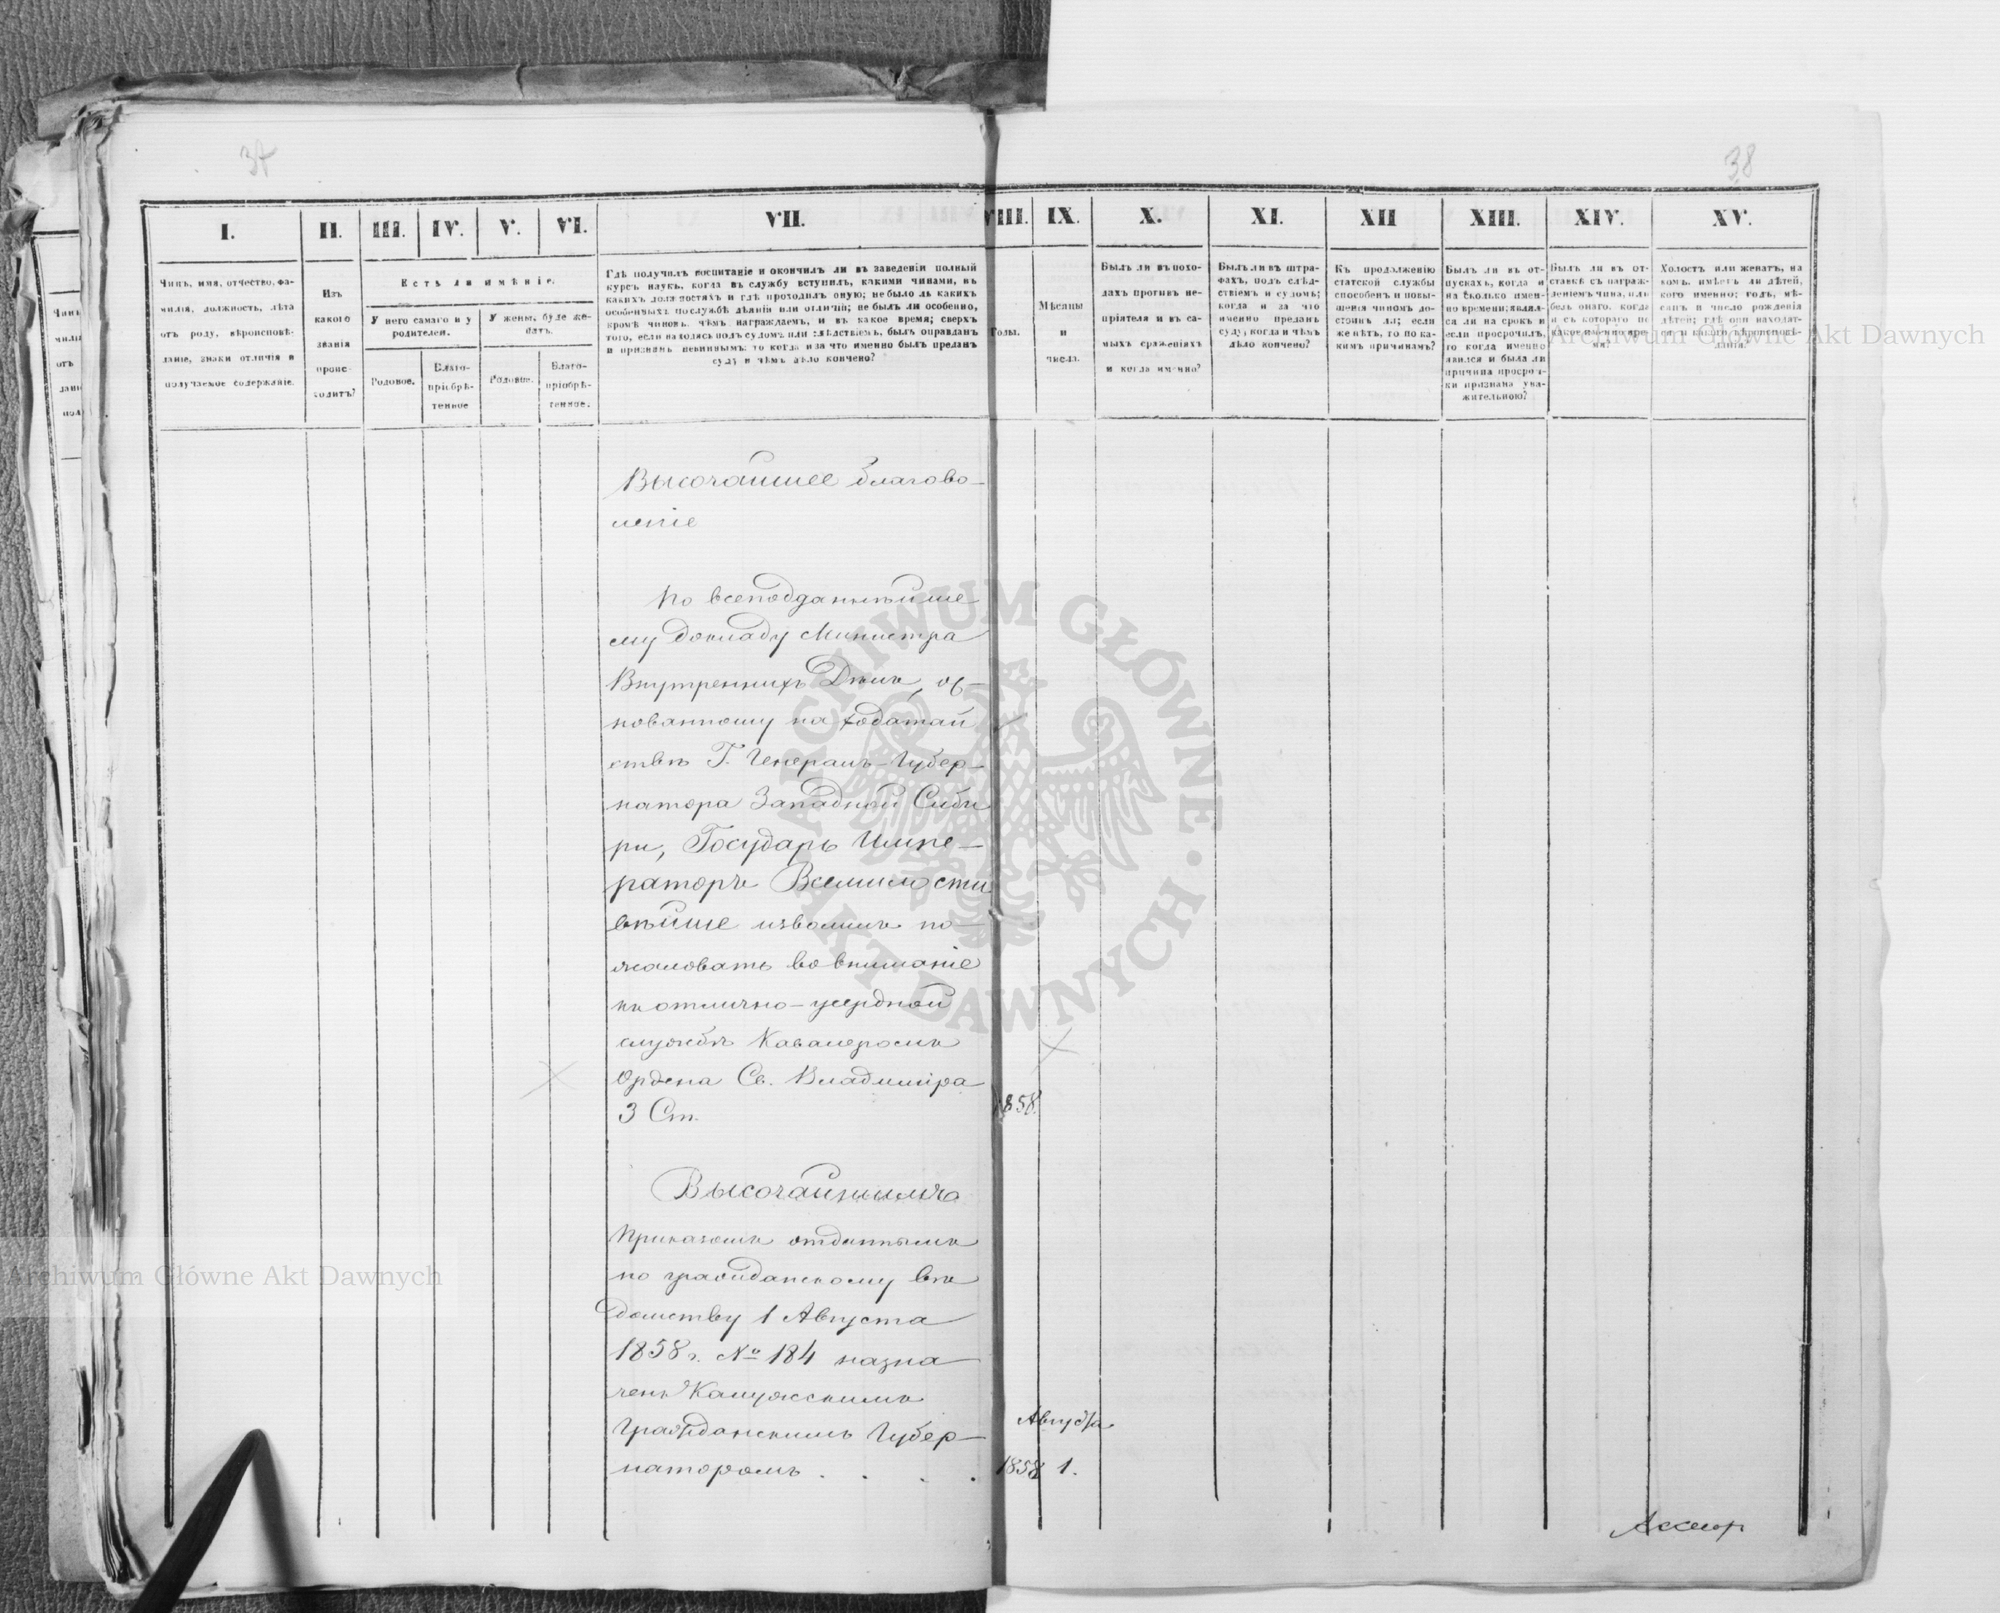 37
38
I.
II.
III.
IV.
V.
VI.
VII.
VIII.
IX.
X.
XI.
XII
XIII.
XIV.
XV.
Чинъ, имя, отчество, фа-
милія, должность, лѣта
отъ роду, вѣроисповѣ-
даніе, знаки отличія и
получаемое содержаніе.
Изъ
какого
званія
проис-
ходитъ?
Есть ли имѣніе.
У него самаго и у
родителей.
У жены, буде же-
натъ.
Родовое.
Благо-
пріобрѣ-
тенное
Родовое.
Благо-
пріобрѣ-
тенное.
Гдѣ получилъ воспитаніе и окончилъ ли въ заведеніи полный
курсъ наукъ, когда въ службу вступилъ, какими чинами, въ
какихъ должностяхъ и гдѣ проходилъ оную; не было ль какихъ
особенныхъ по службѣ дѣяній или отличій; не былъ ли особенно,
кромѣ чиновъ, чѣмъ награждаемъ, и въ какое время; сверхъ
того, если находясь подъ судомъ или слѣдствіемъ, былъ оправданъ
и признанъ невиннымъ: то когда и за что именно былъ преданъ
суду и чѣмъ дѣло кончено?
Годы.
Мѣсяцы
и
числа.
Былъ ли въ похо-
дахъ противъ не-
пріятеля и въ са-
мыхъ сраженіяхъ
и когда именно?
Былъ ли въ штра-
фахъ, подъ слѣд-
ствіемъ и судомъ;
когда и за что
именно преданъ
суду, когда и чѣмъ
дѣло кончено?
Къ продолженію
статской службы
способенъ и повы-
шенія чиномъ до-
стоинъ ли; если
же нѣтъ, то по ка-
кимъ причинамъ?
Былъ ли въ от-
пускахъ, когда и
на сколько имен-
но времени; являл-
ся ли на срокъ и
если просрочилъ,
то когда именно
явился и была ли
причина просроч-
ки признана ува-
жительною?
Былъ ли въ от-
ставкѣ съ награж-
деніемъ чина, или
безъ онаго, когда
и съ котораго по
какое именно вре-
мя?
Холостъ или женатъ, на
комъ, имѣетъ ли дѣтей,
кого именно; годъ, мѣ-
сяцъ и число рожденія
дѣтей; гдѣ они находят-
ся и какого вѣроисповѣ-
данія?
Высочайшее благово-
леніе
По всеподданнѣйше
му докладу Министра
Внутреннихъ Дѣлъ, ос-
нованному на ходатай
ствѣ Г. Генералъ-Губер-
натора Западной Сиби
ри, Государь Импе-
раторъ Всемилости
вѣйше изволилъ по-
жаловать во вниманіе
къ отлично-усердной
службѣ Кавалеромъ
Ордена Св. Владиміра
3 Ст.
1858.
Высочайшимъ
Приказомъ отданнымъ
по гражданскому вѣ
домству 1 Августа
1858 г. № 184 назна
ченъ Калужскимъ
Гражданскимъ Губер-
наторомъ . . . .
1858
Августа
1.
Archiwum Główne Akt Dawnych
Archiwum Główne Akt Dawnych
ARCHIWUM GŁÓWNE AKT DAWNYCH